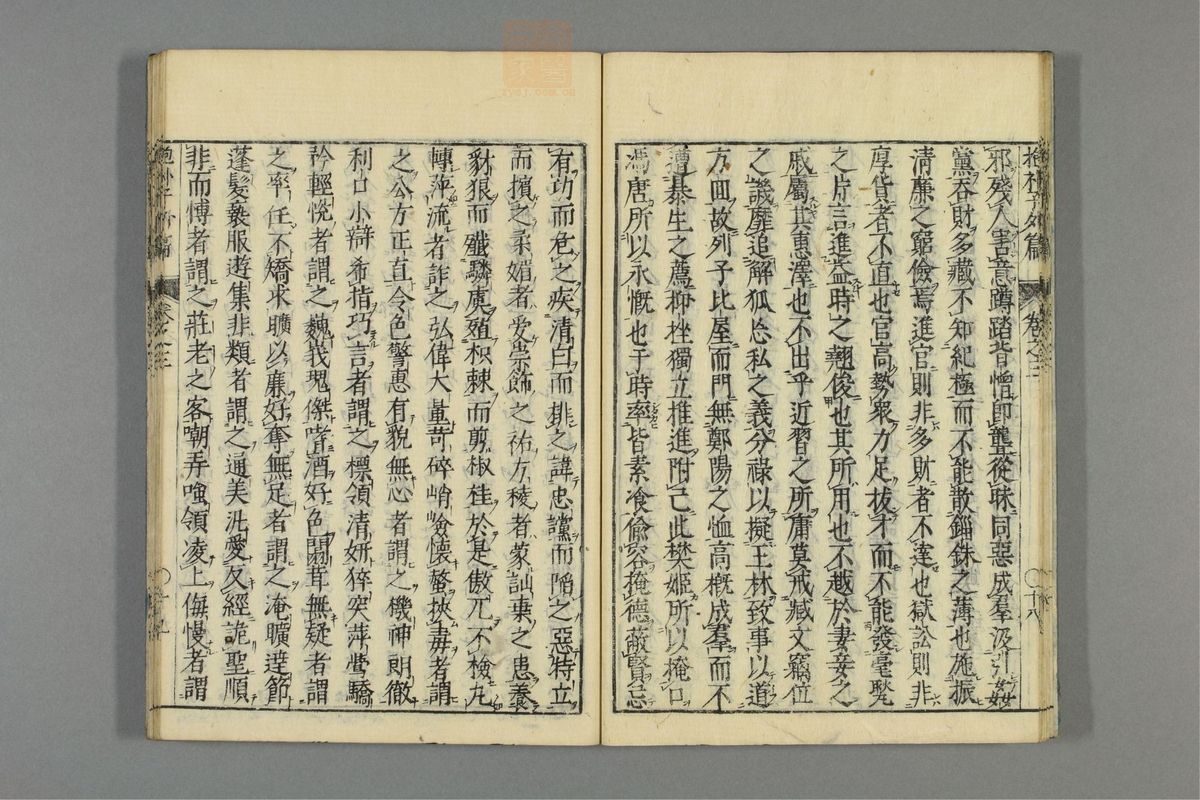 抱朴子外篇 卷之三 十八
邪殘人害意蹲踏皆憎即聾從昧同惡成羣汲引姦
黨吞財多藏不知紀極而不能散錙銖之薄也施振
清廉之窮儉焉進官則非多財者不達也獄訟則非
厚貨者不直也官高勢衆力足拔才而不能發毫釐
之片言進益時之翹俊也其所用也不越於妻妾之
戚屬其惠澤也不出乎近習之所庸莫戒臧文竊位
之譏靡追解狐忘私之義分祿以擬王林致事以道
方回故列子比屋而門無鄭陽之恤高概成羣而不
遭暴生之薦抑挫獨立推進附己此樊姬所以掩口
馮唐所以永慨也于時率皆素飡偷容掩德蔽賢忌
有功而危之疾清白而排之諱忠讜而陷之惡特立
而擯之柔媚者受崇飾之祐方稜者蒙訕棄之患養
豺狼而殲驎虞殖枳棘而剪椒桂於是傲兀不檢丸
轉萍流者謂之弘偉大量苛碎峭嶮懷螫挾毒者謂
之公方正直令色警惠有貌無心者謂之機神朗徹
利口小辯希指巧言者謂之標領清妍猝突萍鸎驕
矜輕悅者謂之巍峩瑰傑嗜酒好色闒茸無疑者謂
之率任不矯求曠以廉好奪無足者謂之淹曠遠節
蓬髮褻服遊集非類者謂之通美汎愛反經詭聖順
非而博者謂之莊老之客嘲弄嗤領凌上侮慢者謂
抱朴子外篇 卷之三